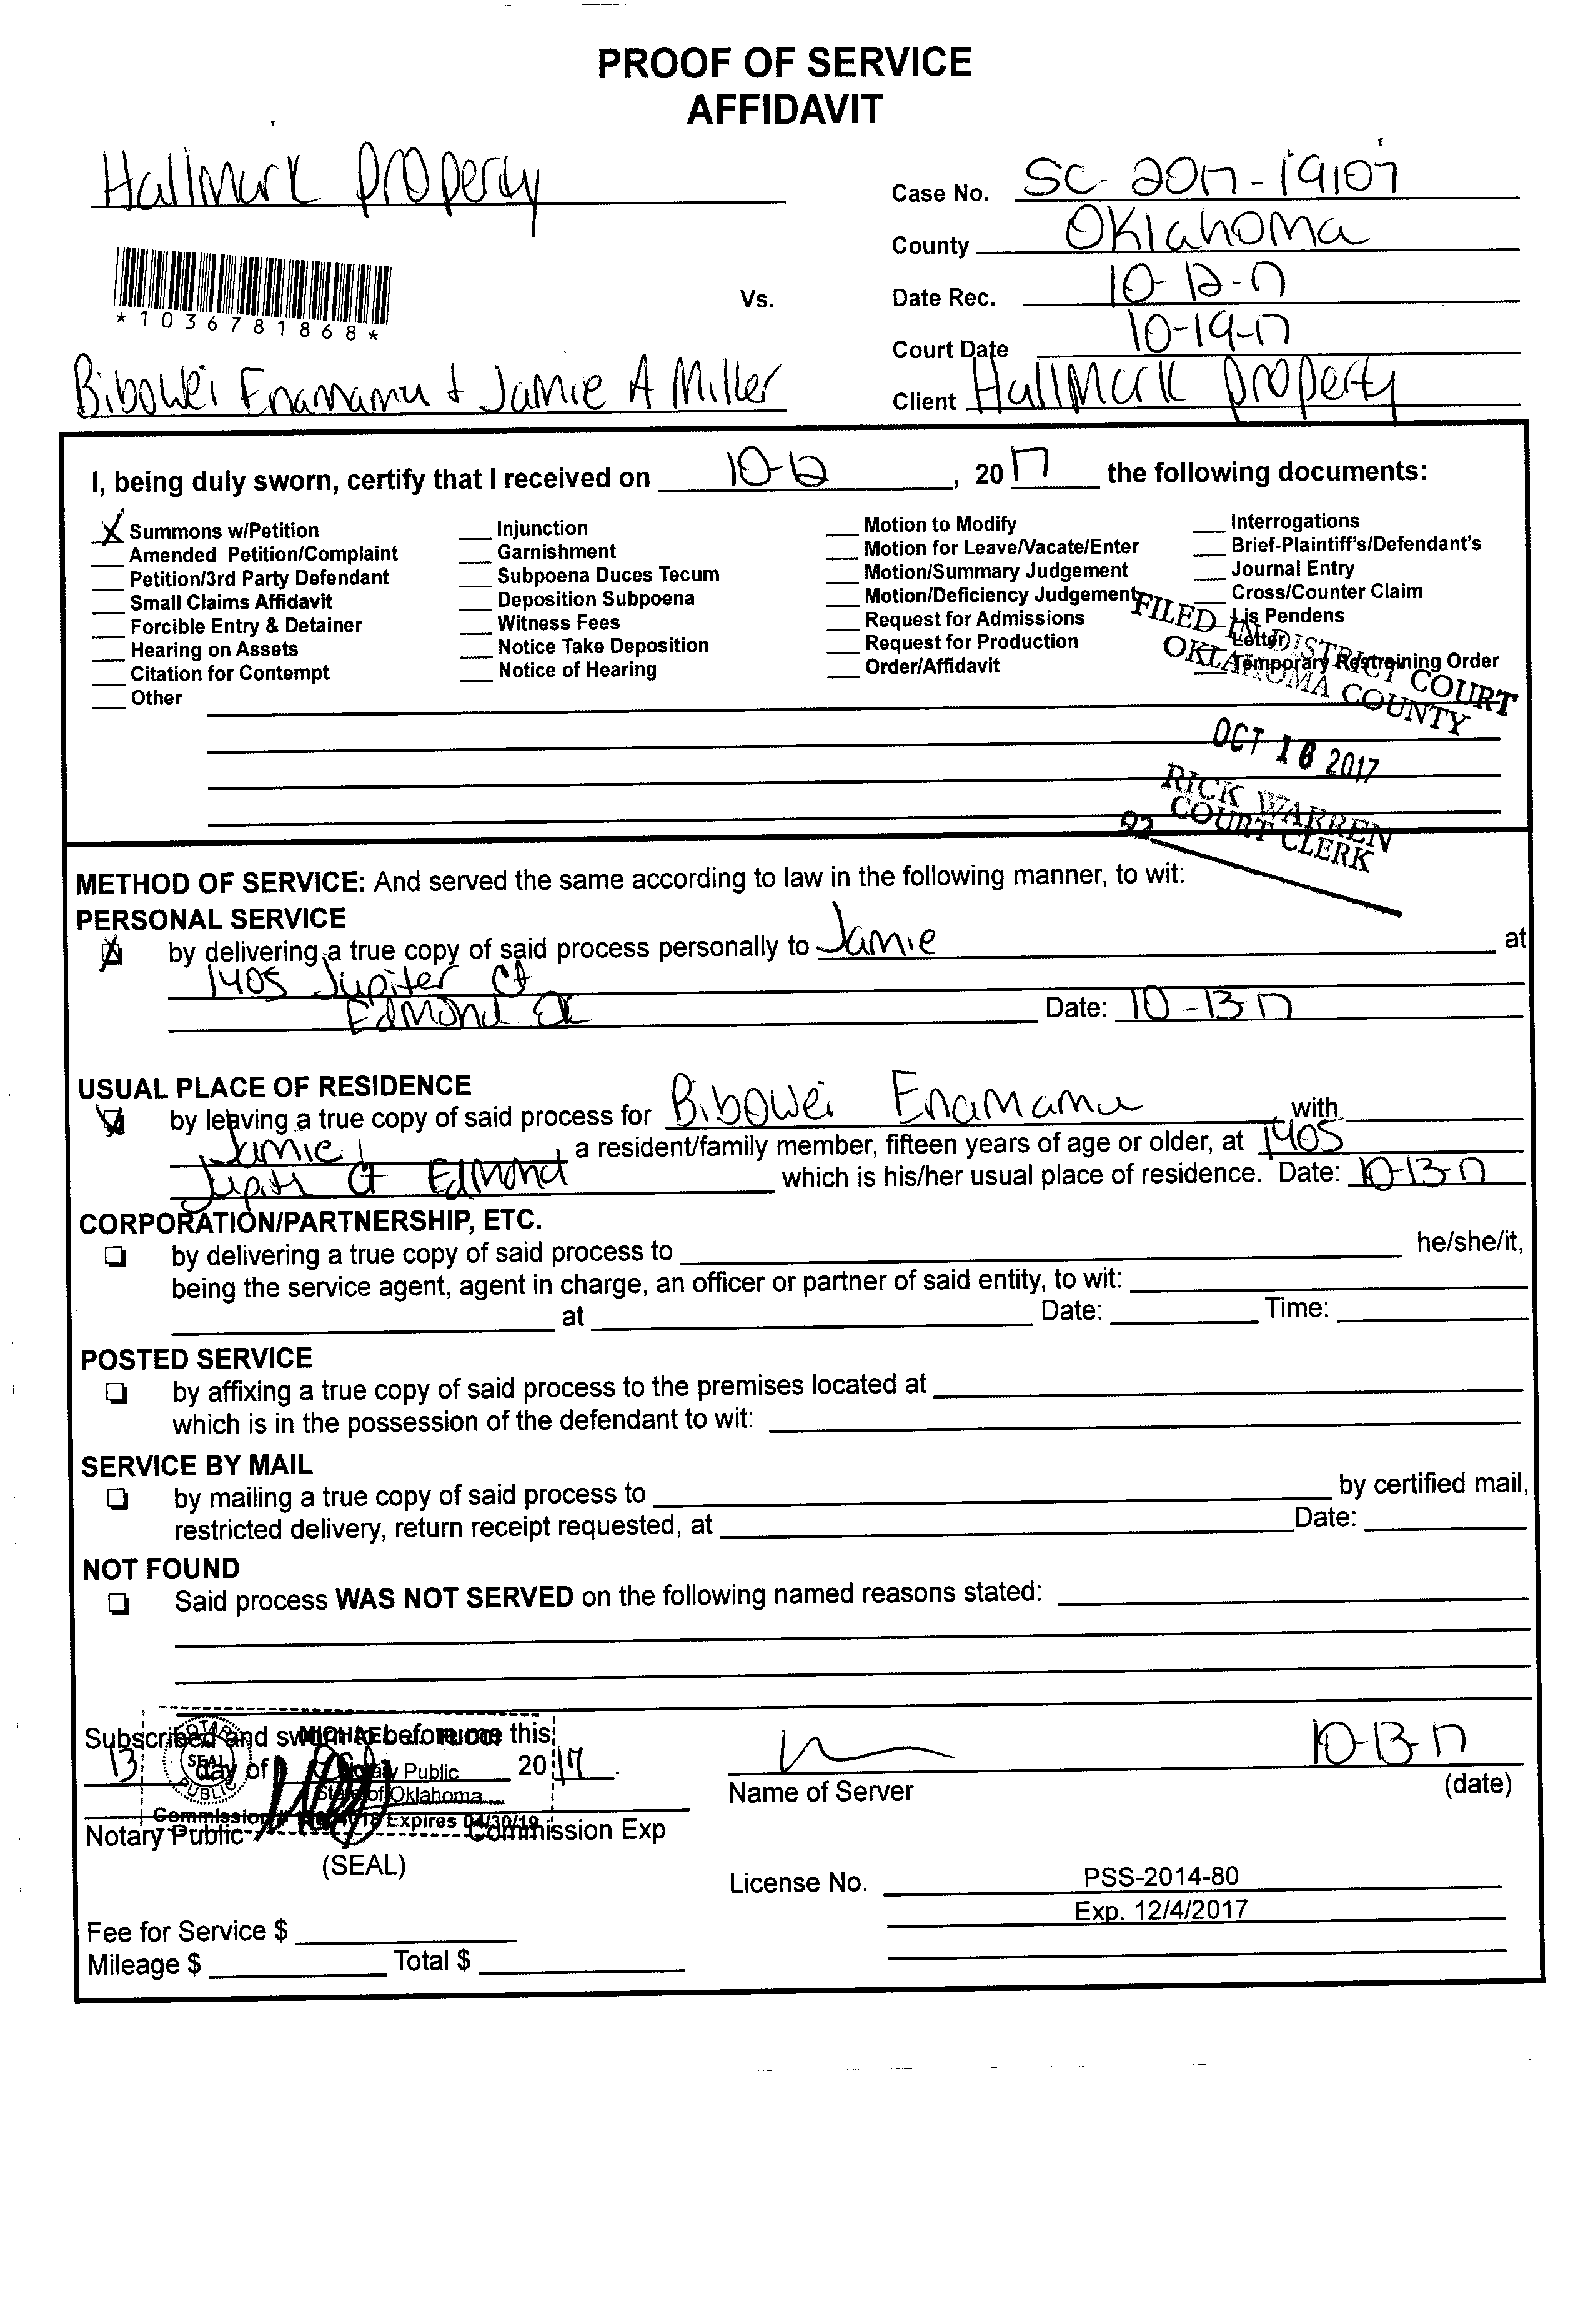 PROOF OF SERVICE
AFFIDAVIT
Hallmark Property
Case No. SC-2017-19107
County Oklahoma
*1036781868*
Vs.
Date Rec. 10-12-17
Court Date 10-19-17
Bibowei Enamamu + Jamie A Miller
Client Hallmark Property
I, being duly sworn, certify that I received on 10-12, 20 17 the following documents:
X Summons w/Petition
Amended Petition/Complaint
Petition/3rd Party Defendant
Small Claims Affidavit
Forcible Entry & Detainer
Hearing on Assets
Citation for Contempt
Other
Injunction
Garnishment
Subpoena Duces Tecum
Deposition Subpoena
Witness Fees
Notice Take Deposition
Notice of Hearing
Motion to Modify
Motion for Leave/Vacate/Enter
Motion/Summary Judgement
Motion/Deficiency Judgement
Request for Admissions
Request for Production
Order/Affidavit
Interrogations
Brief-Plaintiff's/Defendant's
Journal Entry
Cross/Counter Claim
Lis Pendens
Letter
Temporary Restraining Order
FILED IN DISTRICT COURT
OKLAHOMA COUNTY
OCT 16 2017
RICK WARREN
COURT CLERK
92
METHOD OF SERVICE: And served the same according to law in the following manner, to wit:
PERSONAL SERVICE
by delivering a true copy of said process personally to Jamie at
1405 Jupiter Ct
Edmond OK Date: 10-13-17
USUAL PLACE OF RESIDENCE
by leaving a true copy of said process for Bibowei Enamamu, with
Jamie a resident/family member, fifteen years of age or older, at 1405
Jupiter Ct Edmond which is his/her usual place of residence. Date: 10-13-17
CORPORATION/PARTNERSHIP, ETC.
by delivering a true copy of said process to he/she/it,
being the service agent, agent in charge, an officer or partner of said entity, to wit:
at Date: Time:
POSTED SERVICE
by affixing a true copy of said process to the premises located at
which is in the possession of the defendant to wit:
SERVICE BY MAIL
by mailing a true copy of said process to by certified mail,
restricted delivery, return receipt requested, at Date:
NOT FOUND
Said process WAS NOT SERVED on the following named reasons stated:
Subscribed and sworn to before me this
13 day of 20 17.
NOTARY PUBLIC SEAL
MICHAEL J.
Notary Public
State of Oklahoma
Commission # Expires 04/30/19
Notary Public Commission Exp
(SEAL)
10-13-17
Name of Server (date)
License No. PSS-2014-80
Exp. 12/4/2017
Fee for Service $
Mileage $ Total $